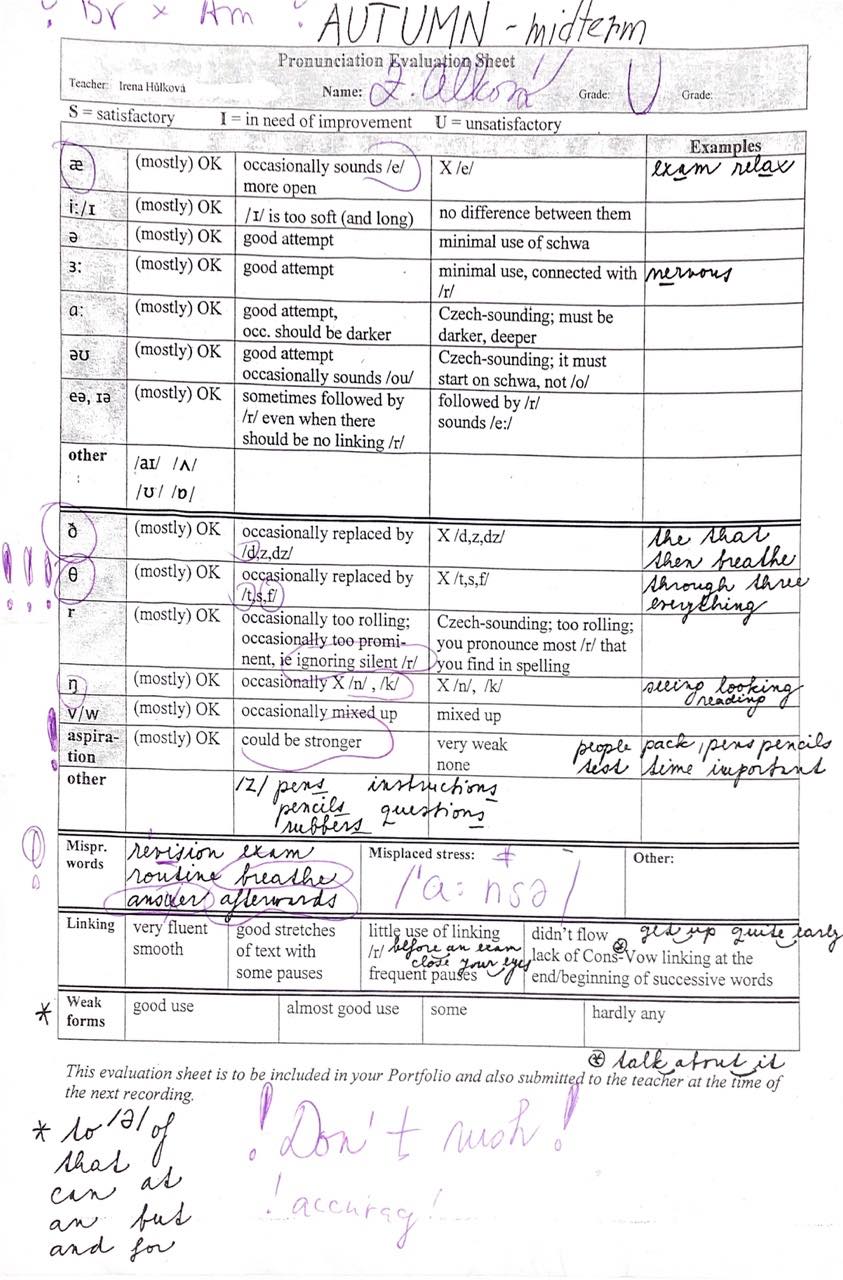 ! Br × Am !
AUTUMN - midterm
Pronunciation Evaluation Sheet
Teacher: Irena Hůlková Name: Grade: U Grade:
S = satisfactory I = in need of improvement U = unsatisfactory
Examples
æ (mostly) OK occasionally sounds /e/ X /e/ exam relax
more open
i:/ɪ (mostly) OK /ɪ/ is too soft (and long) no difference between them
ə (mostly) OK good attempt minimal use of schwa
ɜ: (mostly) OK good attempt minimal use, connected with nervous
/r/
ɑ: (mostly) OK good attempt, Czech-sounding; must be
occ. should be darker darker, deeper
əʊ (mostly) OK good attempt Czech-sounding; it must
occasionally sounds /ou/ start on schwa, not /o/
eə, ɪə (mostly) OK sometimes followed by followed by /r/
/r/ even when there sounds /e:/
should be no linking /r/
other /aɪ/ /ʌ/
: /ʊ/ /ɒ/
ð (mostly) OK occasionally replaced by X /d,z,dz/ the that
/d,z,dz/ then breathe
!!! θ (mostly) OK occasionally replaced by X /t,s,f/ through three
/t,s,f/ everything
r (mostly) OK occasionally too rolling; Czech-sounding; too rolling;
occasionally too promi- you pronounce most /r/ that
nent, ie ignoring silent /r/ you find in spelling
ŋ (mostly) OK occasionally X /n/ , /k/ X /n/, /k/ seeing looking
reading
v/w (mostly) OK occasionally mixed up mixed up
! aspira- (mostly) OK could be stronger very weak people pack, pens pencils
tion none test time important
other /z/ pens instructions
pencils questions
rubbers
! Mispr. revision exam Misplaced stress: Other:
words routine breathe
answer afterwards /'a:nsə/
Linking very fluent good stretches little use of linking didn't flow get up quite early
smooth of text with /r/ before an exam lack of Cons-Vow linking at the
some pauses close your eyes end/beginning of successive words
frequent pauses
* Weak good use almost good use some hardly any
forms
⊛ talk about it
This evaluation sheet is to be included in your Portfolio and also submitted to the teacher at the time of
the next recording.
* to /ə/ of
that
can at
an but
and for
! Don't rush!
! accuracy!